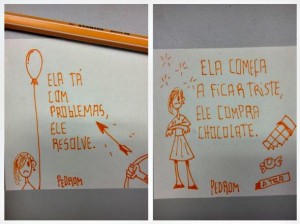 ELA TÁ
COM
PROBLEMAS,
ELE
RESOLVE.
PEDROM
ELA COMEÇA
A FICAR TRISTE,
ELE COMPRA
CHOCOLATE.
PEDROM